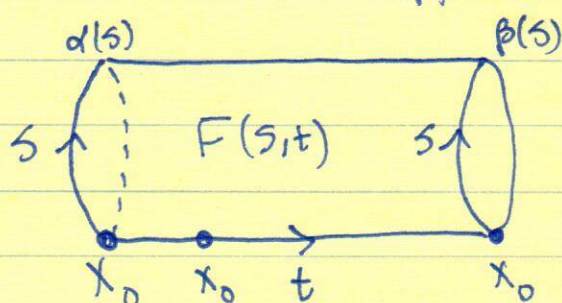 α(s) β(s)
s F(s,t) s
x₀ x₀ t x₀